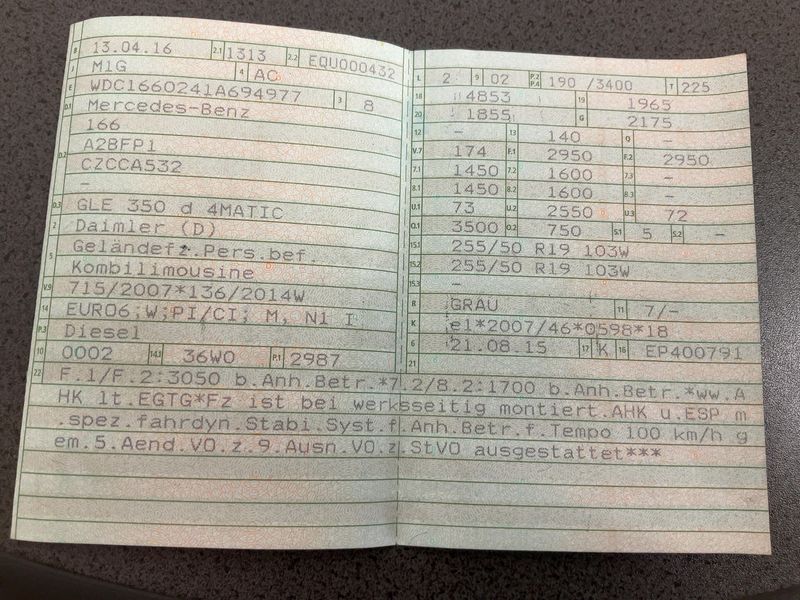 B 13.04.16 2.1 1313 2.2 EQU000432
J M1G 4 AC
E WDC1660241A694977 3 8
D.1 Mercedes-Benz
166
D.2 A2BFP1
CZCCA532
-
D.3 GLE 350 d 4MATIC
2 Daimler (D)
5 Geländefz.Pers.bef.
Kombilimousine
V.9 715/2007*136/2014W
14 EURO6;W;PI/CI; M, N1 I
P.3 Diesel
10 0002 14.1 36W0 P.1 2987
L 2 9 02 P.2 P.4 190 /3400 T 225
18 4853 19 1965
20 1855 G 2175
12 - 13 140 Q -
V.7 174 F.1 2950 F.2 2950
7.1 1450 7.2 1600 7.3 -
8.1 1450 8.2 1600 8.3 -
U.1 73 U.2 2550 U.3 72
O.1 3500 O.2 750 S.1 5 S.2 -
15.1 255/50 R19 103W
15.2 255/50 R19 103W
15.3 -
R GRAU 11 7/-
K e1*2007/46*0598*18
6 21.08.15 17 K 16 EP400791
21
22 F.1/F.2:3050 b.Anh.Betr.*7.2/8.2:1700 b.Anh.Betr.*ww.A
HK lt.EGTG*Fz ist bei werksseitig montiert.AHK u.ESP m
.spez.fahrdyn.Stabi.Syst.f.Anh.Betr.f.Tempo 100 km/h g
em.5.Aend.VO.z.9.Ausn.VO.z.StVO ausgestattet***